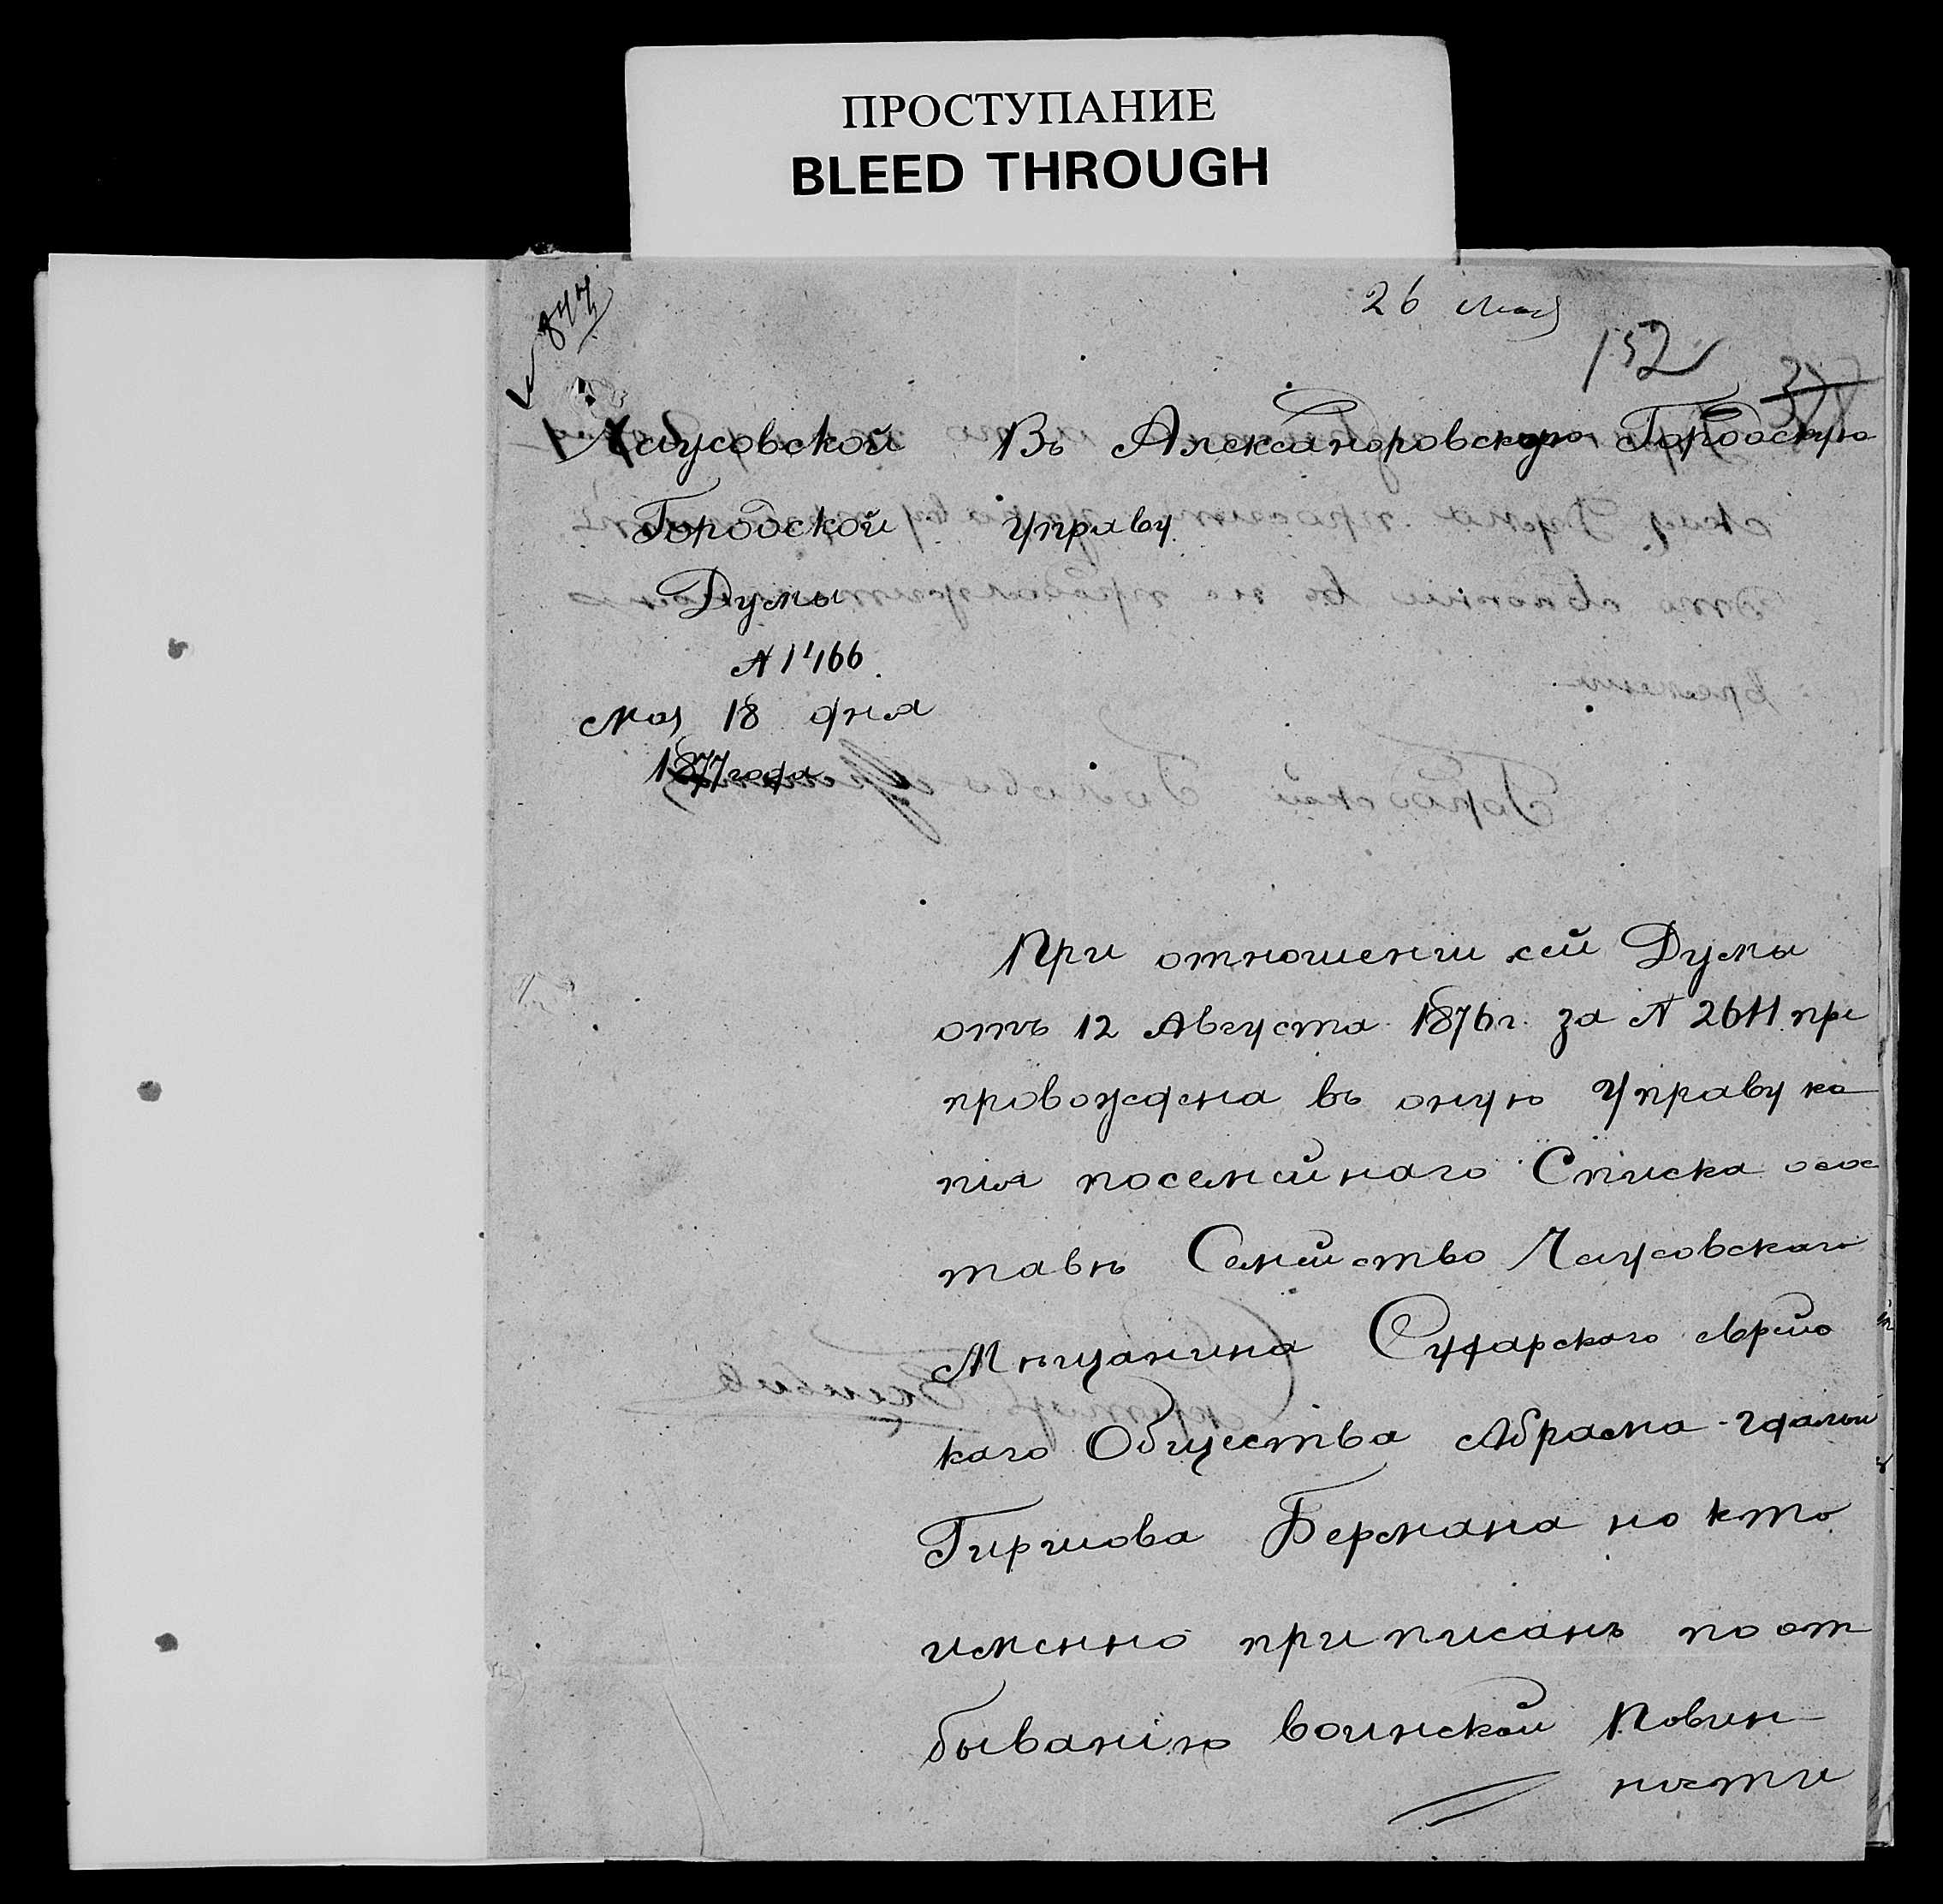 ПРОСТУПАНИЕ
BLEED THROUGH
847
26 Мая
152
378
Чаусовской
Городской
Думы
№ 1466
Мая 18 дня
1877 года
Въ Александровскую Городскую
Управу
При отношении сей Думы
отъ 12 Августа 1876 г. за № 2611 пре
провождена въ оную Управу ко
пия посемейнаго Списка о сос
тавѣ Семейство Чаусовскаго
Мѣщанина еврейс
каго Общества Абрама-
Гиршова Бермана но кто
именно приписанъ по от
быванію воинской Повин
ности